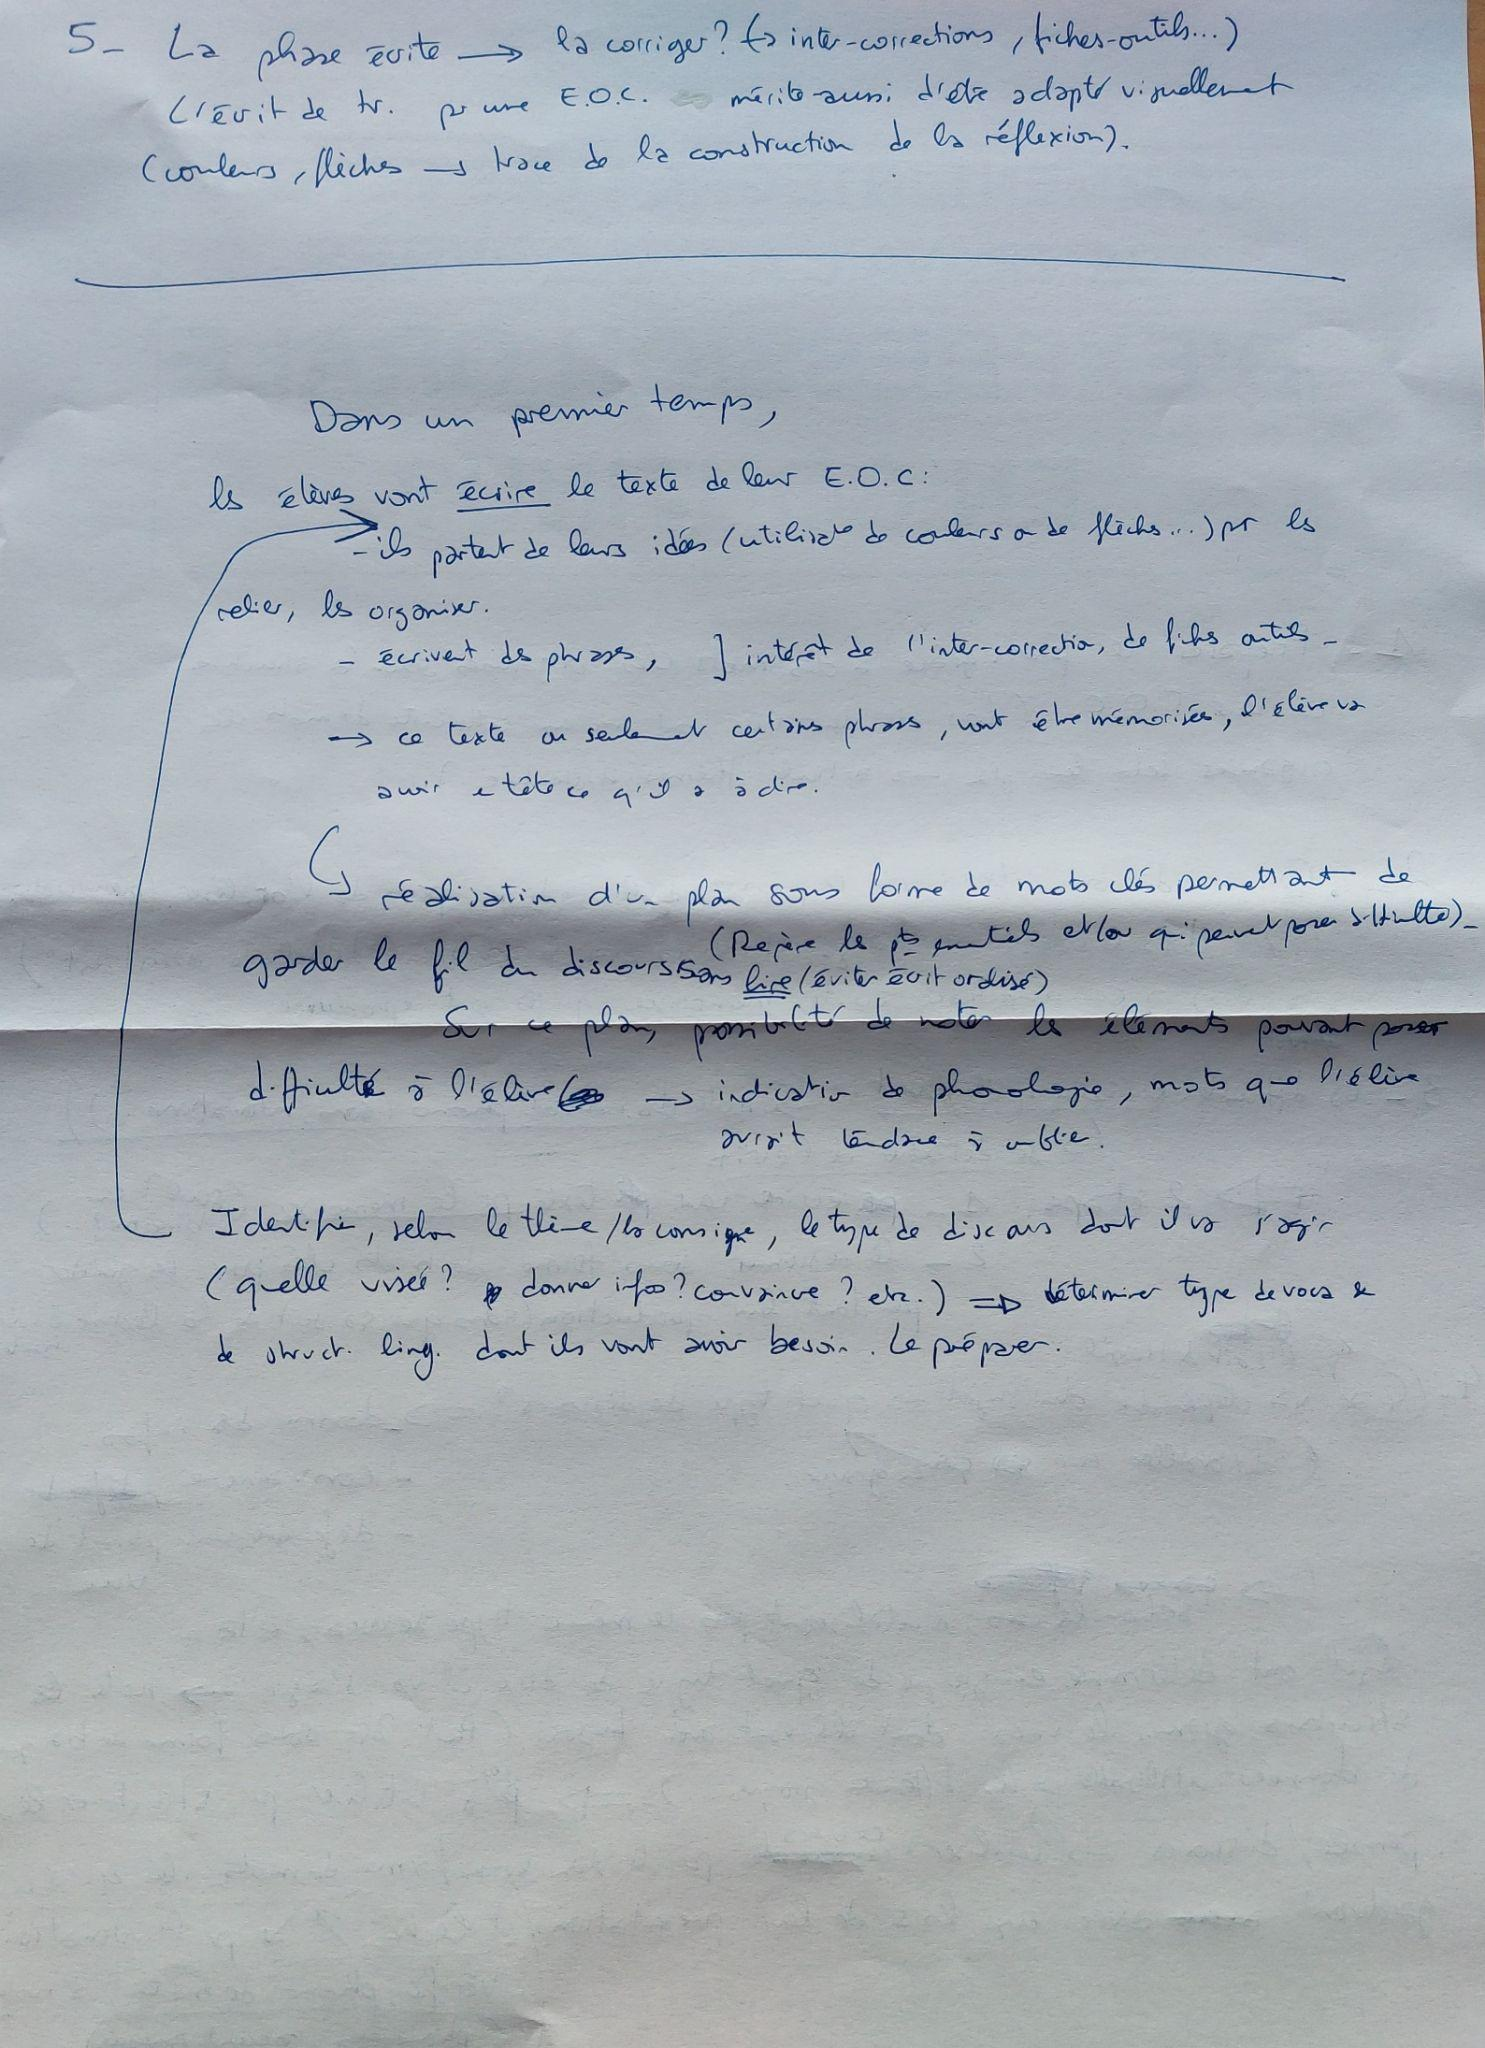 5- La phase écrite → la corriger ? (→ inter-corrections, fiches-outils...)
L'écrit de tr. pr une E.O.C. mérite aussi d'être adapté visuellement
(couleurs, flèches → trace de la construction de la réflexion).
Dans un premier temps,
ls élèves vont écrire le texte de leur E.O.C :
- ils partent de leurs idées (utilisat° de couleurs ou de flèches...) pr les
relier, les organiser.
- écrivent des phrases, ] intérêt de l'inter-correction, de fiches outils -
→ ce texte ou seulement certains phrases, vont être mémorisés, l'élève va
avoir en tête ce qu'il a à dire.
réalisation d'un plan sous forme de mots clés permettant de
(Repère les pts essentiels et/ou qui peuvent poser difficulté)-
garder le fil du discours sans lire (éviter écrit oralisé)
Sur ce plan, possibilité de noter les éléments pouvant poser
difficulté à l'élève → indication de phonologie, mots que l'élève
aurait tendance à oublier.
Identifier, selon le thème/la consigne, le type de discours dont il va s'agir
(quelle visée ? donner infos ? convaincre ? etc.) ⇒ déterminer type de voca &
de struct. ling. dont ils vont avoir besoin. Le préparer.